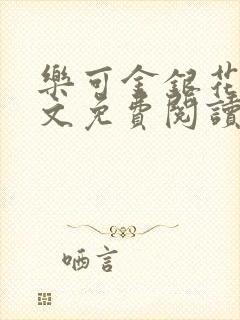 樂可金銀花
文免費閱讀
哂言